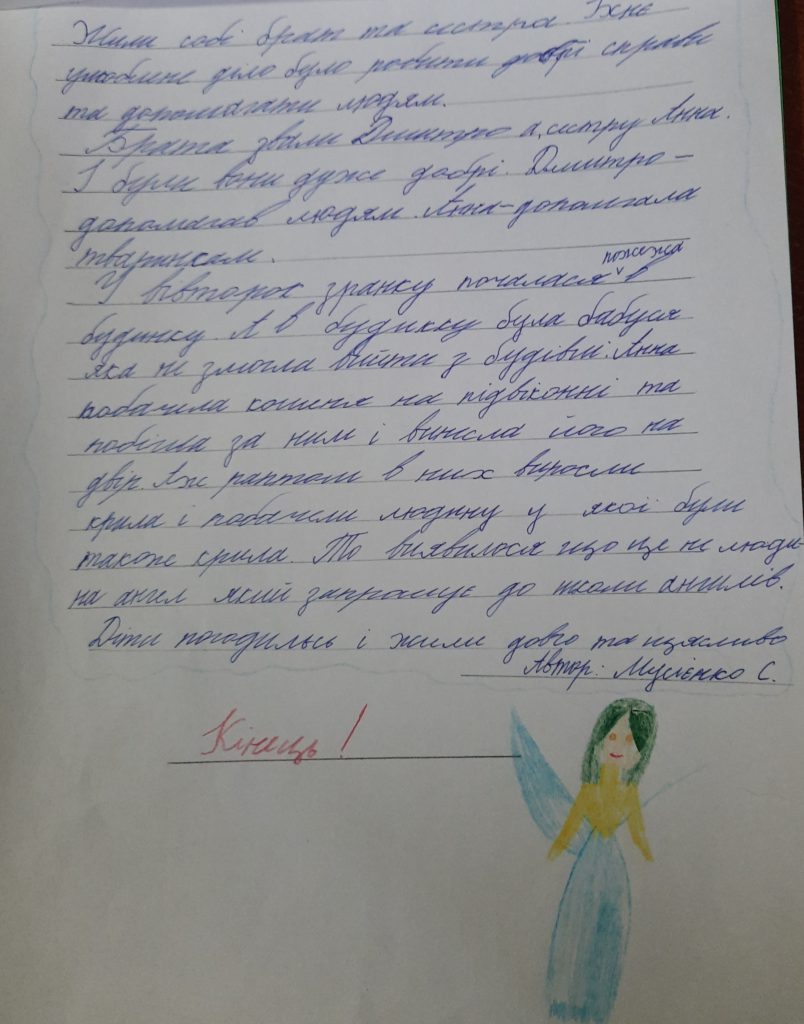 Жили собі брат та сестра. Їхнє
улюблене діло було робити добрі справи
та допомагати людям.
Брата звали Дмитро а, сестру Анна.
І були вони дуже добрі. Дмитро -
допомагав людям. Анна - допомагала
тваринкам.
У вівторок зранку почалася пожежа в
будинку. А в будинку була бабуся
яка не змогла вийти з будівлі. Анна
побачила кошеня на підвіконні та
побігла за ним і винесла його на
двір. Аж раптом в них виросли
крила і побачили людину у якої були
також крила. То виявилося що це не люди-
на ангел який запрошує до школи ангилів.
Діти погодились і жили довго та щасливо
Автор: Мусієнко С.
Кінець!